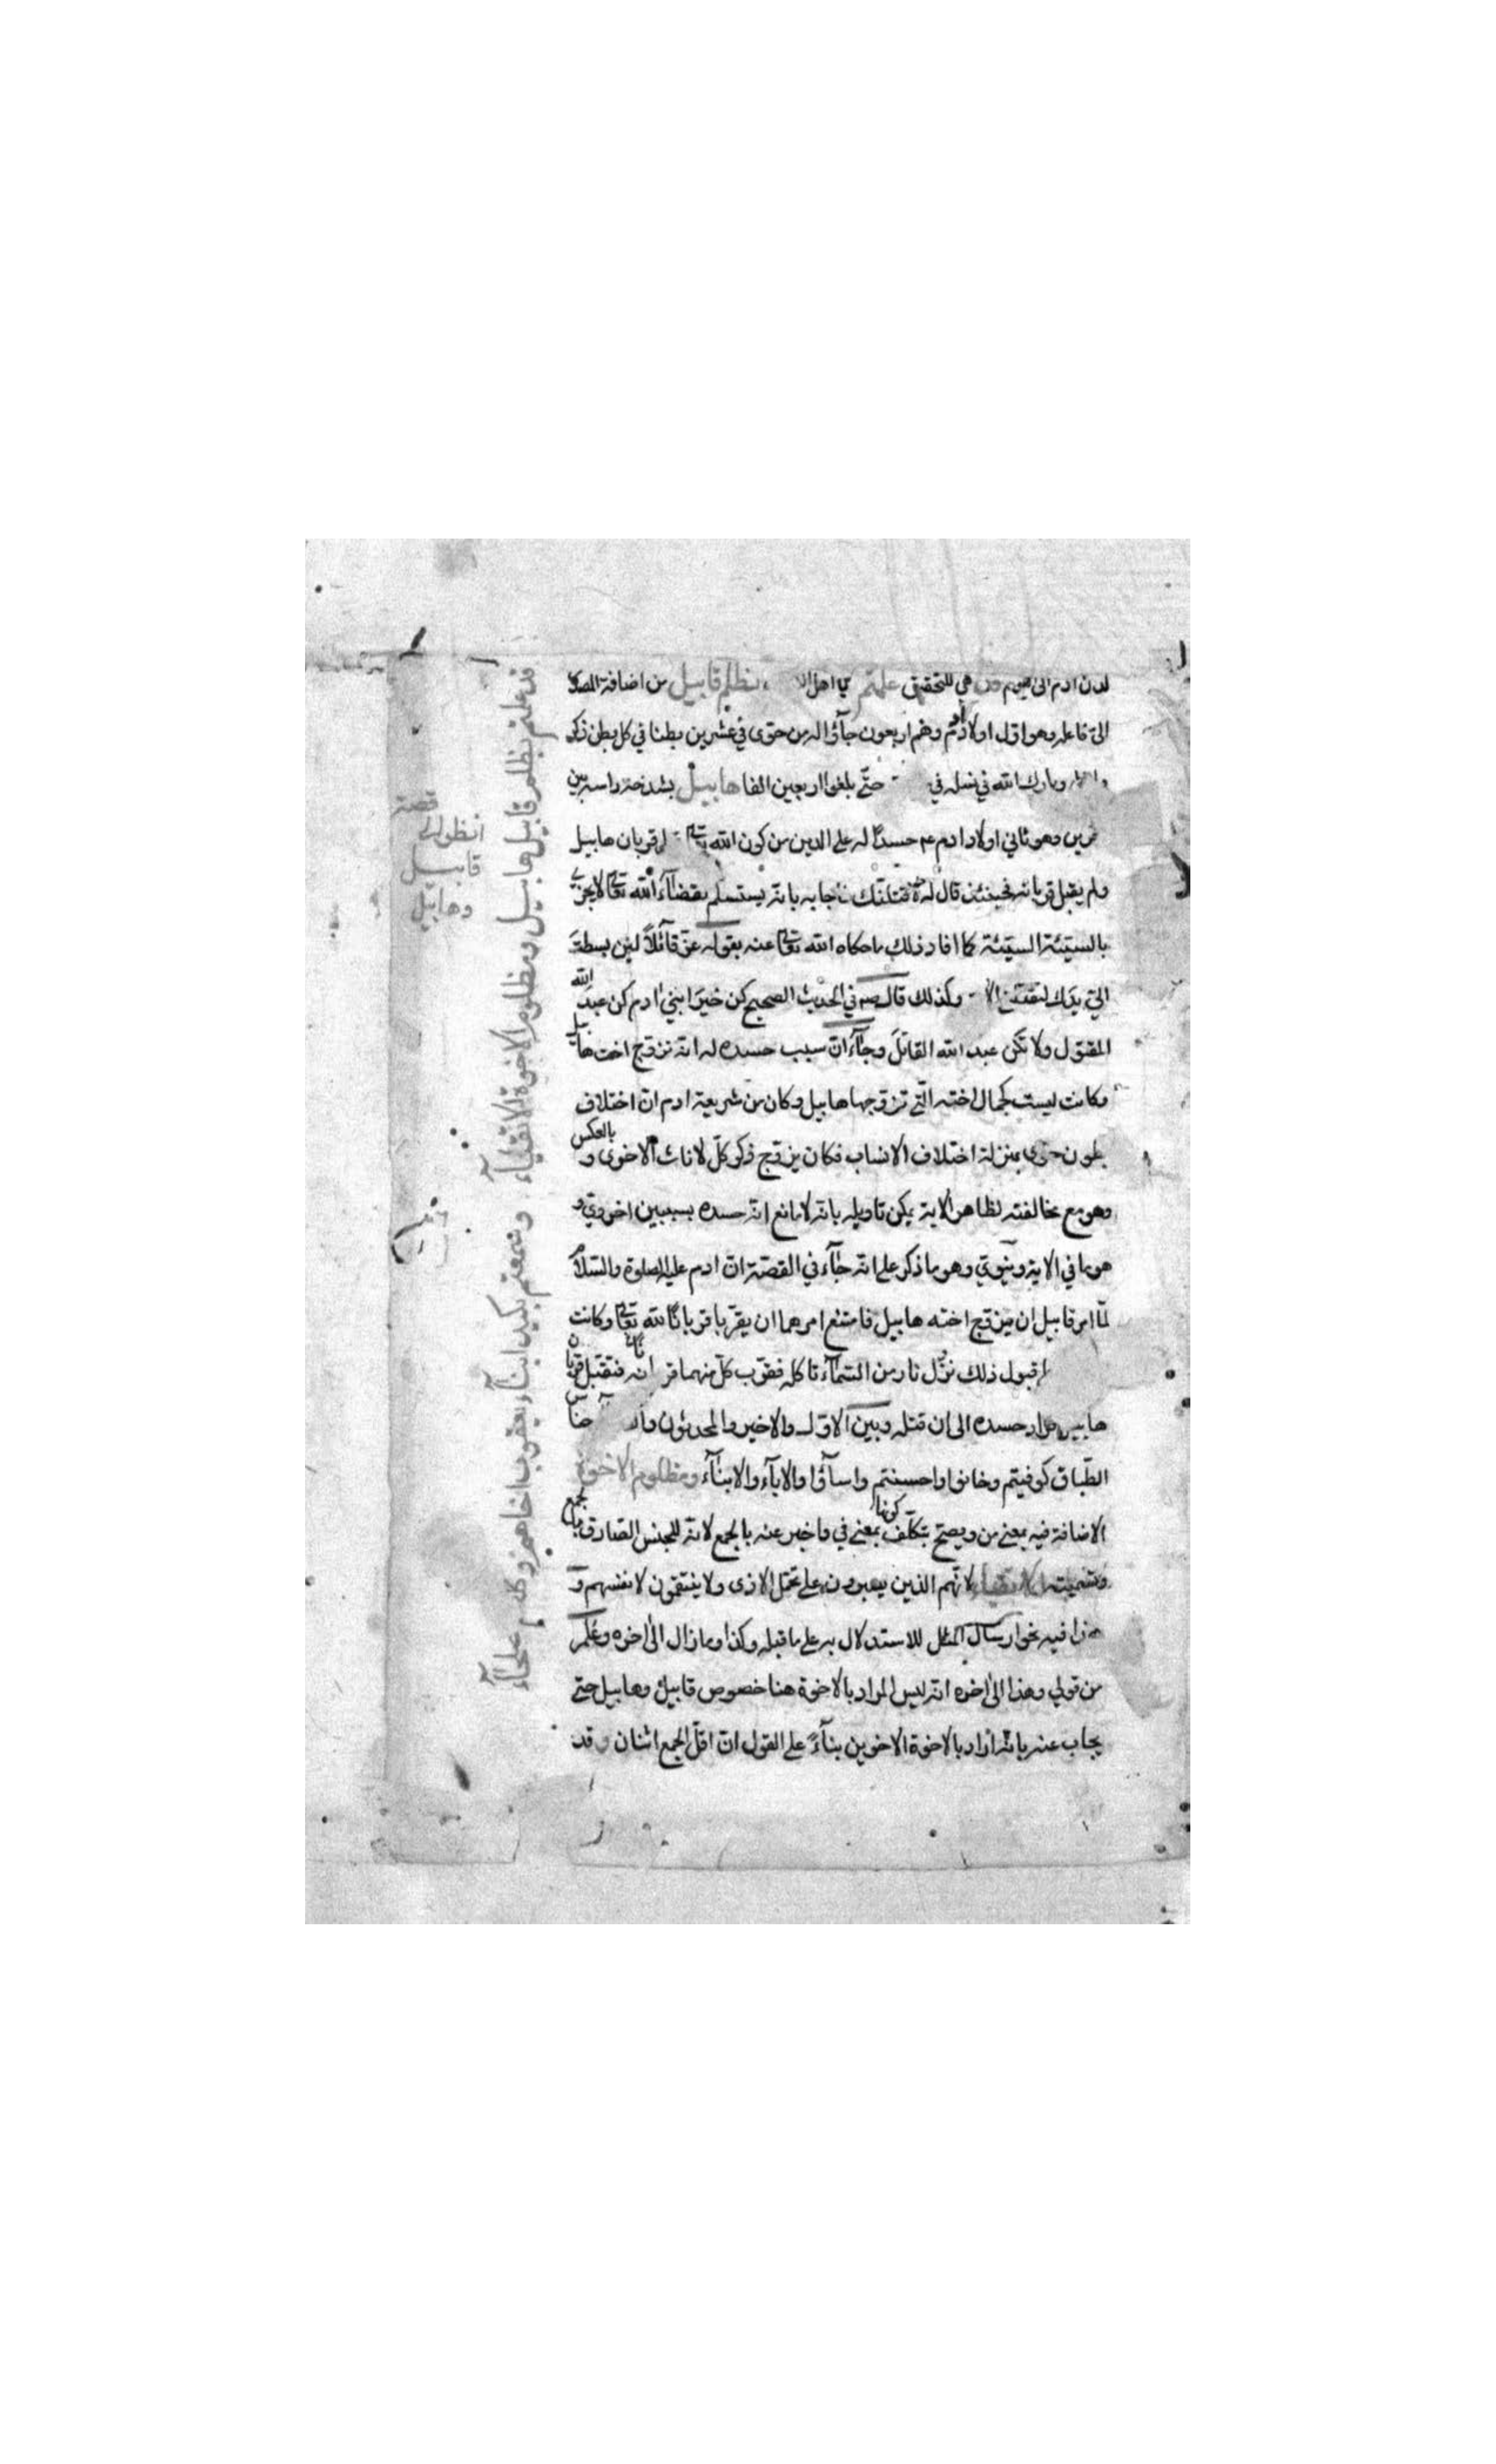 لدن ادم الى يوم قد هي للتحقيق علمتم يا اهل بظلم قابيل من اضافة المصدر
الى فاعله وهو اول اولاد ادم وهم اربعون جآؤا له من حوى في عشرين بطنا في كل بطن ذكر
وبارك الله في نسله في حتّى بلغوا اربعين الفا هابيل بشدخه راسه بين
وهو ثاني اولاد ادم حسدًا له على الدين من كون الله تعالى قربان هابيل
ولم يقبل قربانه فحينئذ قال له لاقتلنك فاجابه بانه يستسلم بقضآء الله تعالى لا يجزي
بالسيّئة السيّئة كما افاد ذلك ما حكاه الله تعالى عنه بقوله عزّ قائلًا لئن بسطت
اليّ يدك لتقتلني وكذلك قال في الحديث الصحيح كن خير ابني ادم كن عبد الله
المقتول ولا تكن عبد الله القاتل وجآء ان سبب حسده له انه تزوج اخت هابيل
وكانت ليست كجمال اخته التي تزوجها هابيل وكان من شريعة ادم ان اختلاف
بطون حوى بمنزلة اختلاف الانساب فكان يزوج ذكر كلّ لاناث الاخرى وبالعكس
وهو مع مخالفته لظاهر الاية يمكن تاويله بانه لا مانع انه حسده بسببين اخروي و
هو ما في الاية ودنيوي وهو ما ذكر على انه جآء في القصّة ان ادم عليه الصلوة والسّلام
لمّا امر قابيل ان يزوج اخته هابيل فامتنع امرهما ان يقرّبا قربانًا لله تعالى وكانت
قبول ذلك نزّل نار من السّمآء تاكله فقرّب كلّ منهما قربانه فتقبل قربان
هابيل حسده الى ان قتله وبين الاوّل والاخير والمحدثون جناس
الطّباق كوفيتم وخانوا واحسنتم واسآؤا والابآء والابنآء ومظلوم الاخوة
الاضافة فيه بمعنى من ويصح بتكلّف كونها بمعنى في واخبر عنه بالجمع لانه للجنس الصادق بالجمع
وتسميته الاتقياء لانّهم الذين يصبرون على تحمّل الاذى ولا ينتقمون لانفسهم و
هذا فيه نحو ارسال المثل للاستدلال به على ما قبله وكذا وما زال الى اخره وعلم
من قولي وهذا الى اخره انه ليس المراد بالاخوة هنا خصوص قابيل وهابيل حتى
يجاب عنه بانه اراد بالاخوة الاخوين بنآءً على القول ان اقلّ الجمع اثنان وقد
قد علمتم بظلم قابيل هابيل ومظلوم الاخوة الاتقيآء
وسمعتم بكيد ابنآء يعقوب اخاهم وكلهم صلحآء
انظر الى قصة
قابيل
وهابيل